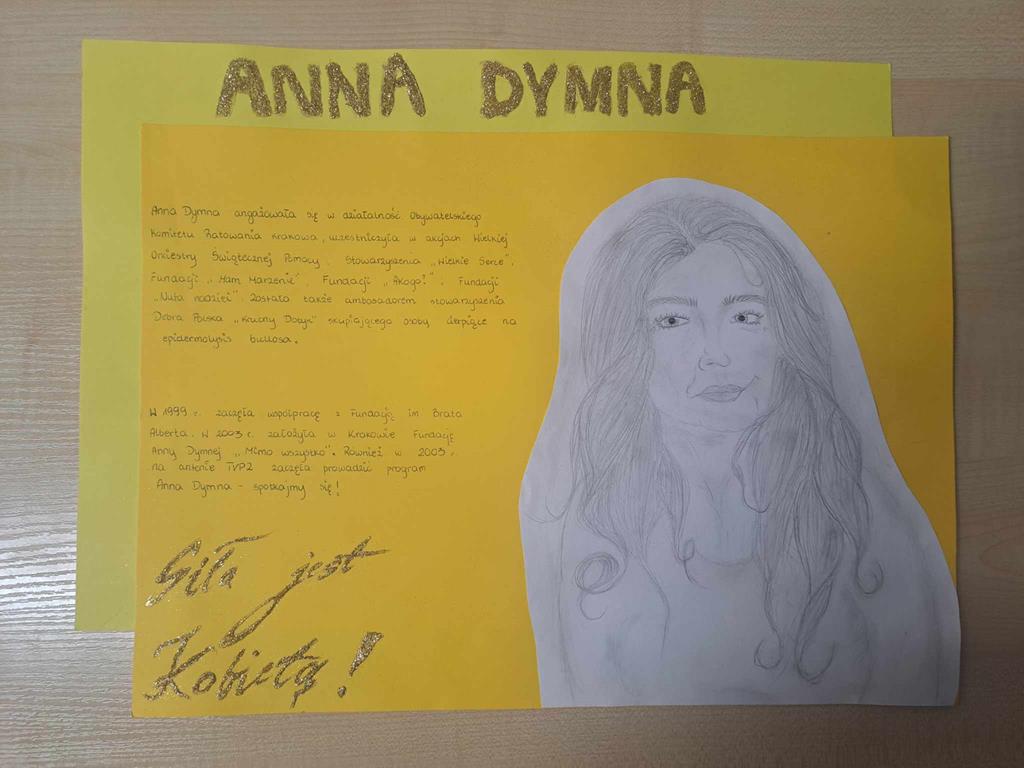 ANNA DYMNA
Anna Dymna angażowała się w działalność Obywatelskiego
Komitetu Ratowania Krakowa, uczestniczyła w akcjach Wielkiej
Orkiestry Świątecznej Pomocy, Stowarzyszenia „Wielkie Serce",
Fundacji „Mam Marzenie", Fundacji „Akogo?", Fundacji
„Nuta nadziei". Została także ambasadorem stowarzyszenia
Debra Polska „Kruchy Dotyk" skupiającego osoby cierpiące na
epidermolysis bullosa.
W 1999 r. zaczęła współpracę z Fundacją im Brata
Alberta. W 2003 r. założyła w Krakowie Fundację
Anny Dymnej „Mimo wszystko". Również w 2003 r.
na antenie TVP2 zaczęła prowadzić program
Anna Dymna - spotkajmy się!
Siła jest
Kobietą!